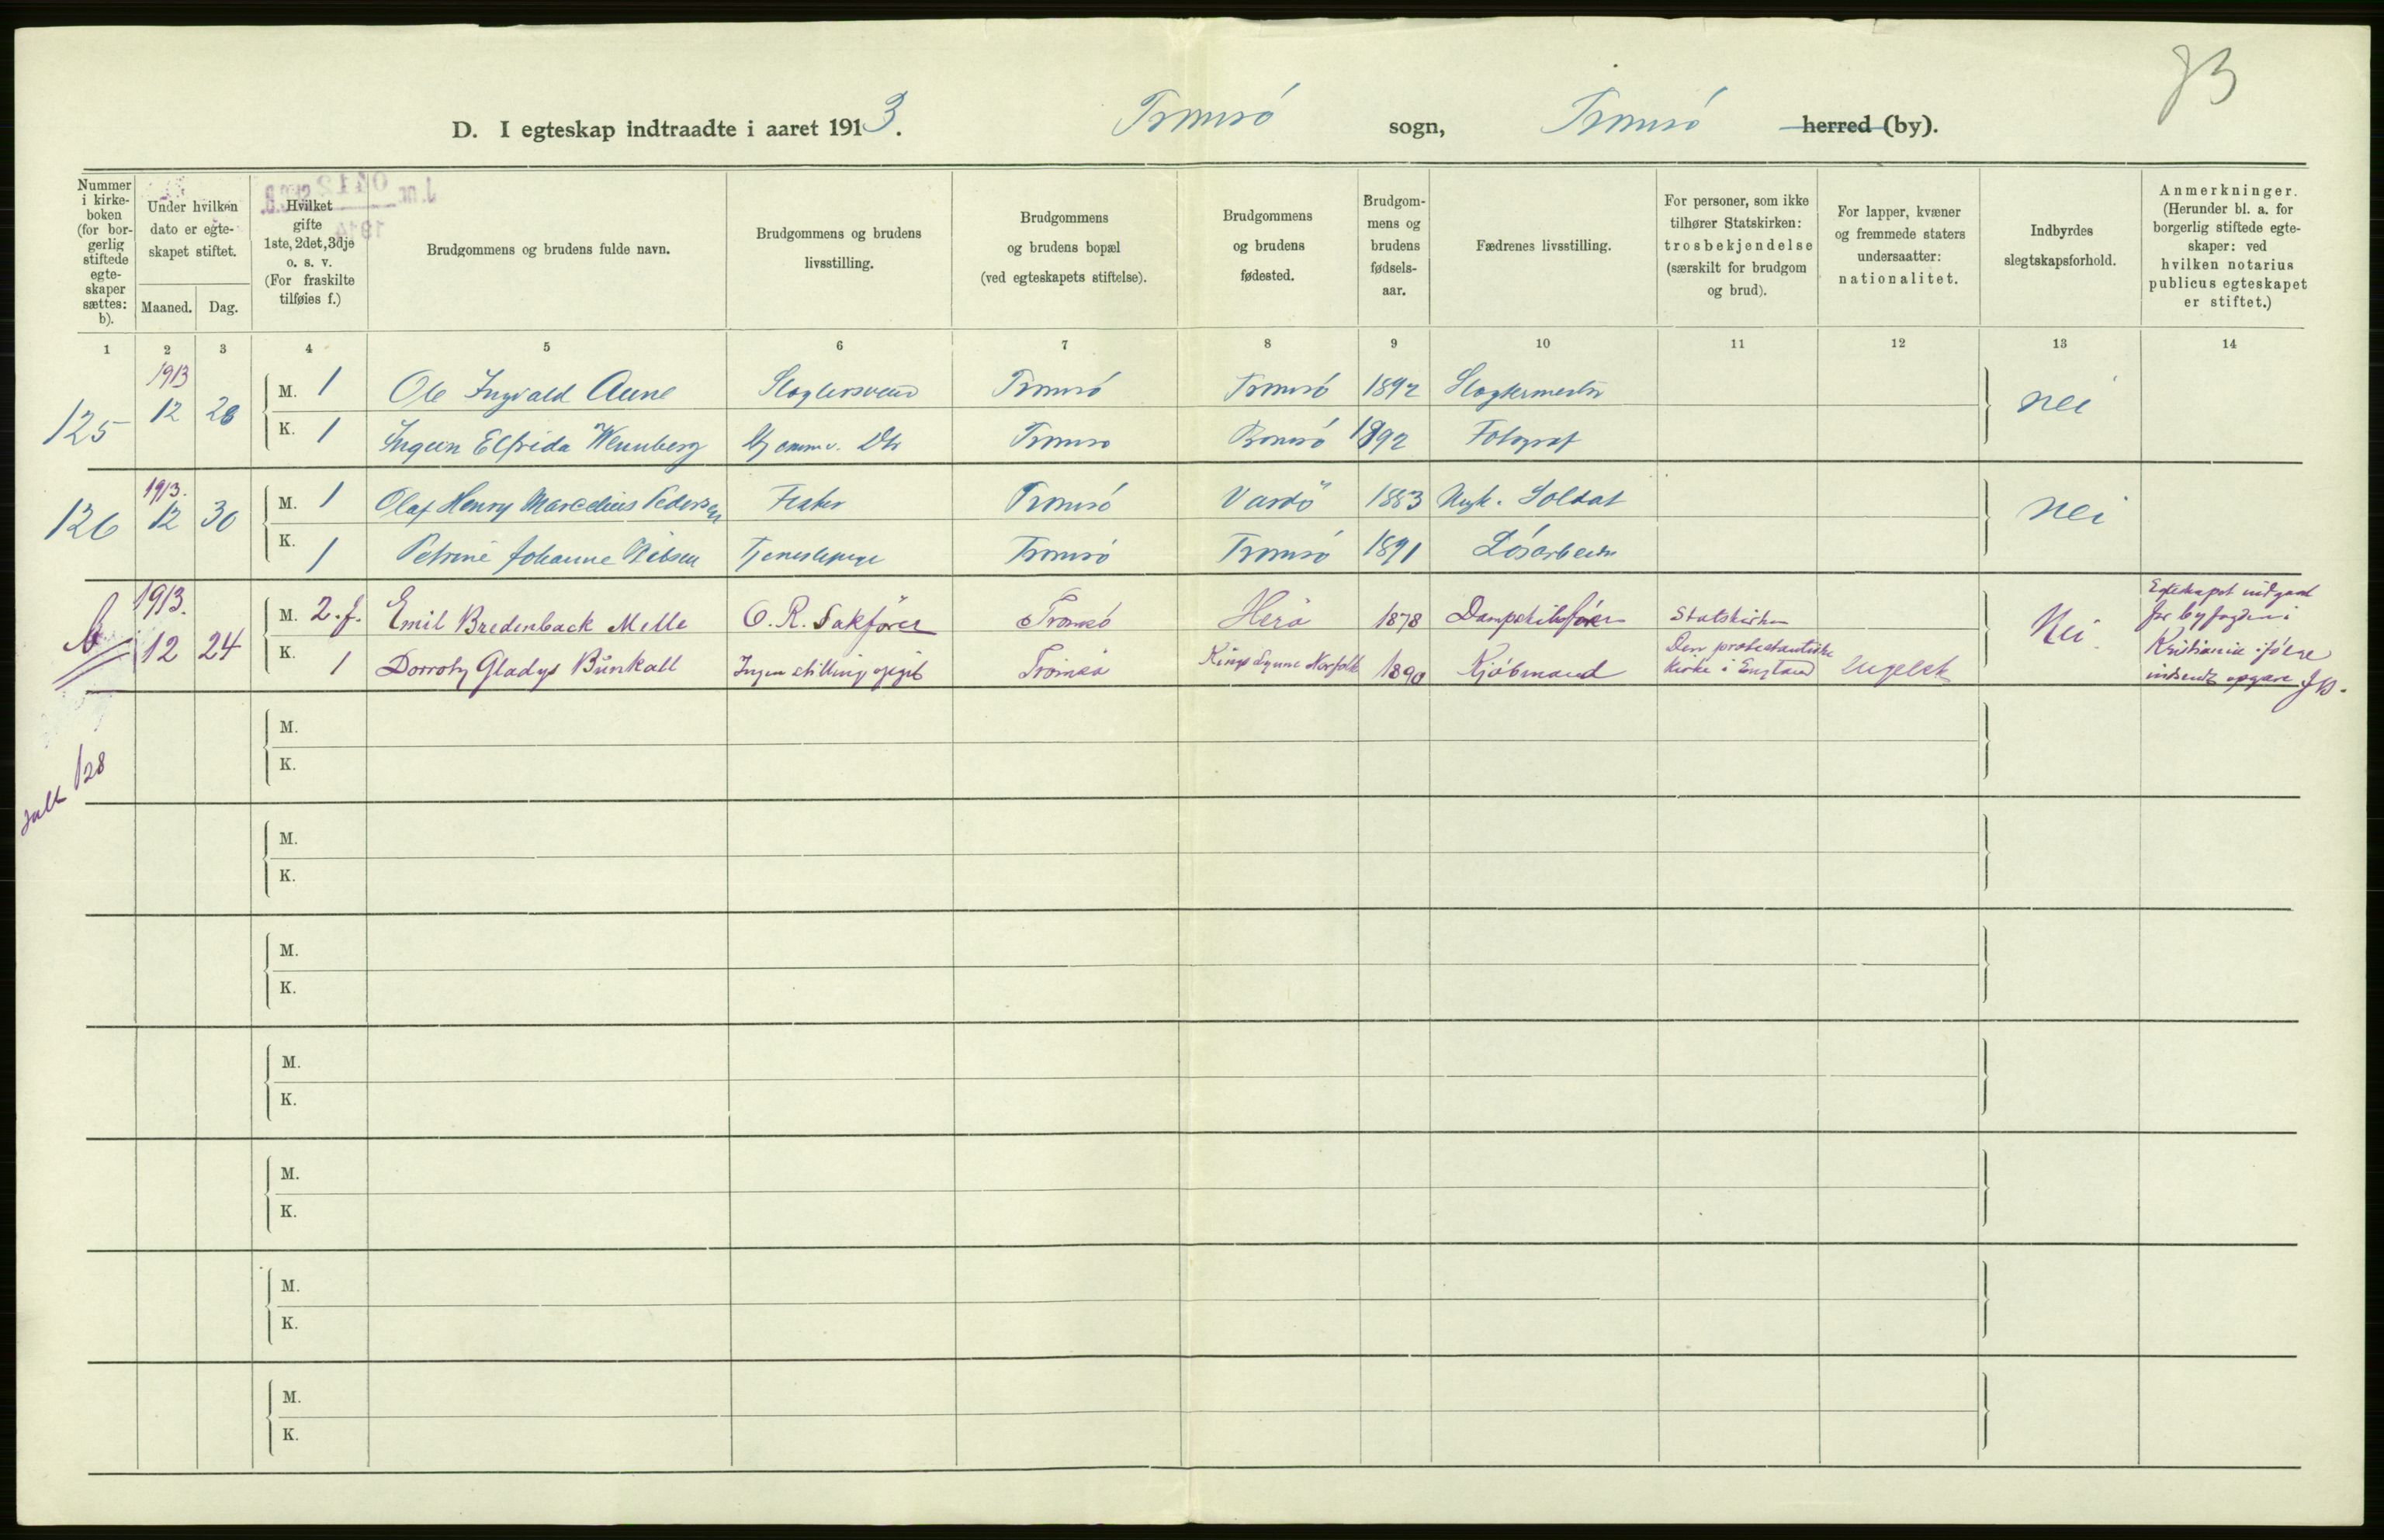 73
D. I egteskap indtraadte i aaret 1913. Tromsö sogn, Tromsö herred (by).
Nummer i kirke-boken (for bor-gerlig stiftede egte-skaper sættes: b).
Under hvilken dato er egte-skapet stiftet.
Maaned. Dag.
Hvilket gifte 1ste, 2det, 3dje o. s. v. (For fraskilte tilføies f.)
Brudgommens og brudens fulde navn.
Brudgommens og brudens livsstilling.
Brudgommens og brudens bopæl (ved egteskapets stiftelse).
Brudgommens og brudens fødested.
Brudgom-mens og brudens fødsels-aar.
Fædrenes livsstilling.
For personer, som ikke tilhører Statskirken: trosbekjendelse (særskilt for brudgom og brud).
For lapper, kvæner og fremmede staters undersaatter: nationalitet.
Indbyrdes slegtskapsforhold.
Anmerkninger. (Herunder bl. a. for borgerlig stiftede egte-skaper: ved hvilken notarius publicus egteskapet er stiftet.)
1 2 3 4 5 6 7 8 9 10 11 12 13 14
125 1913 12 28 M. 1 Ole Ingvald Aune Slagtersvend Tromsö Tromsö 1892 Slagtermester nei
K. 1 Elfrida Wennberg Tromsö Tromsö 1892 Fotograf
126 1913. 12 30 M. 1 Olaf Henry Marcelius Pedersen Fisker Tromsö Vardö 1883 Soldat nei
K. 1 Petrine Johanne Nilsen Tjenestepige Tromsö Tromsö 1891 Lösarbeider
b 1913. 12 24 M. 2. f. Emil Bredenback Melle O. R. Sakförer Tromsö Herö 1878 Dampskibsförer Statskirken Nei.
K. 1 Dorroty Gladys Bünkall Ingen stilling opgit Tromsö Kings Lynne Norfolk 1890 Kjöbmand Den protestantiske Kirke i England Engelsk
Egteskapet indgaat
for byfogden i
Kristiania ifölge
indsendt opgave
128
M.
K.
M.
K.
M.
K.
M.
K.
M.
K.
M.
K.
M.
K.